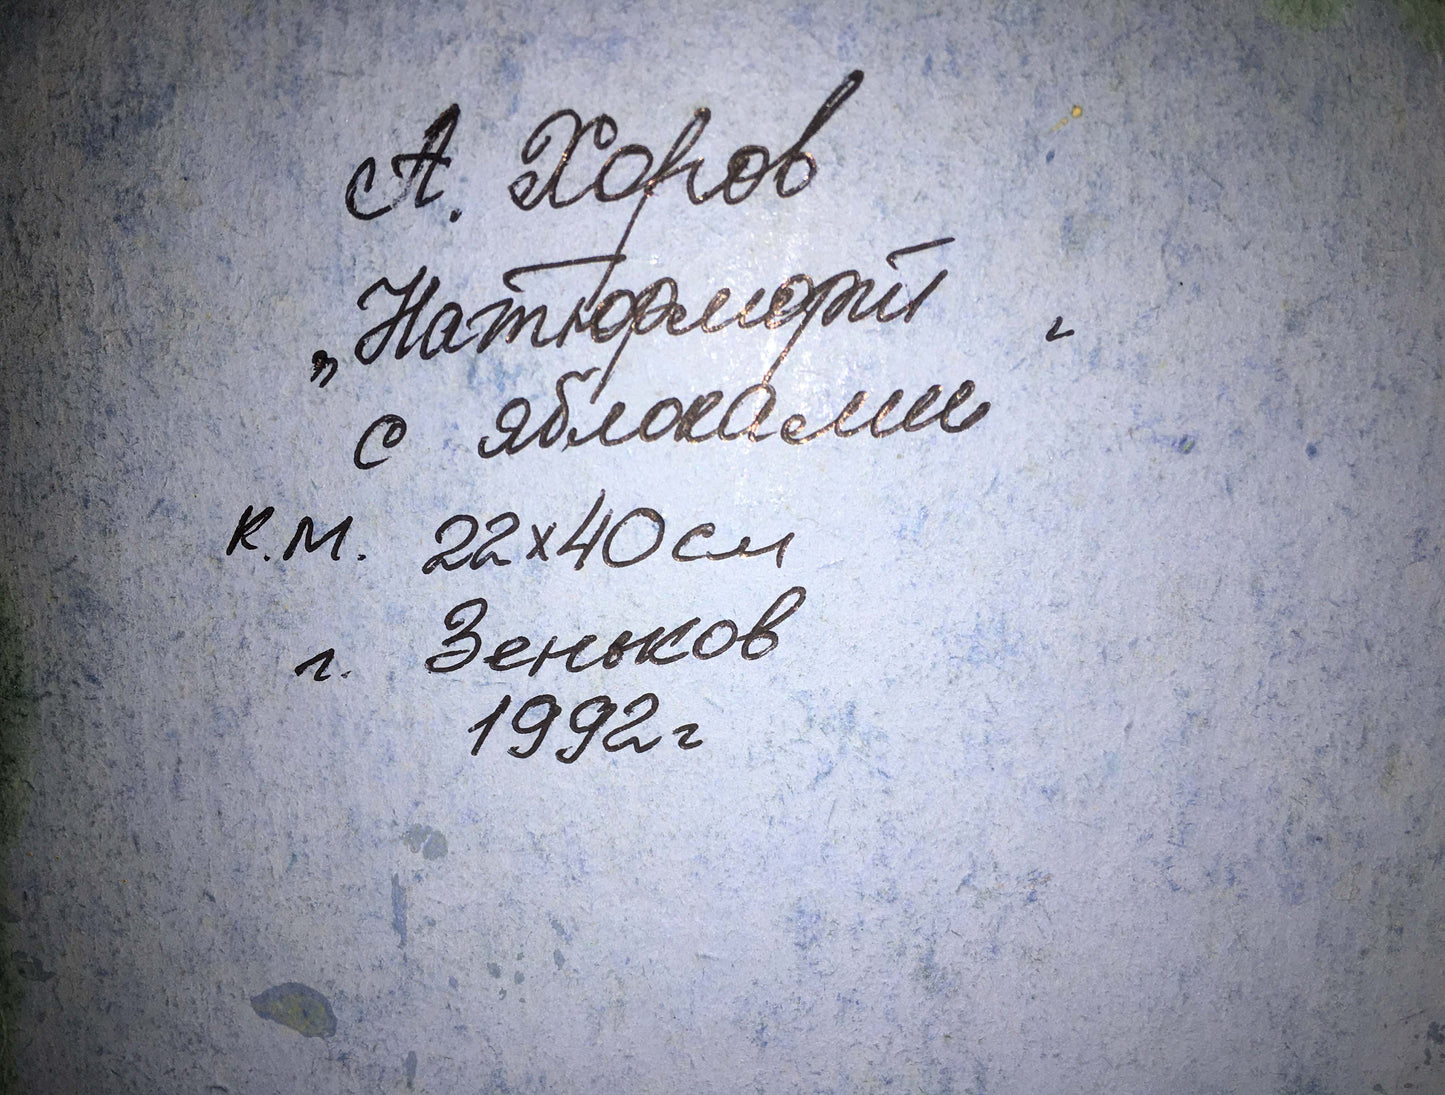 А. Хоров
„Натюрморт
с яблоками
к.м. 22х40см
г. Зеньков
1992г